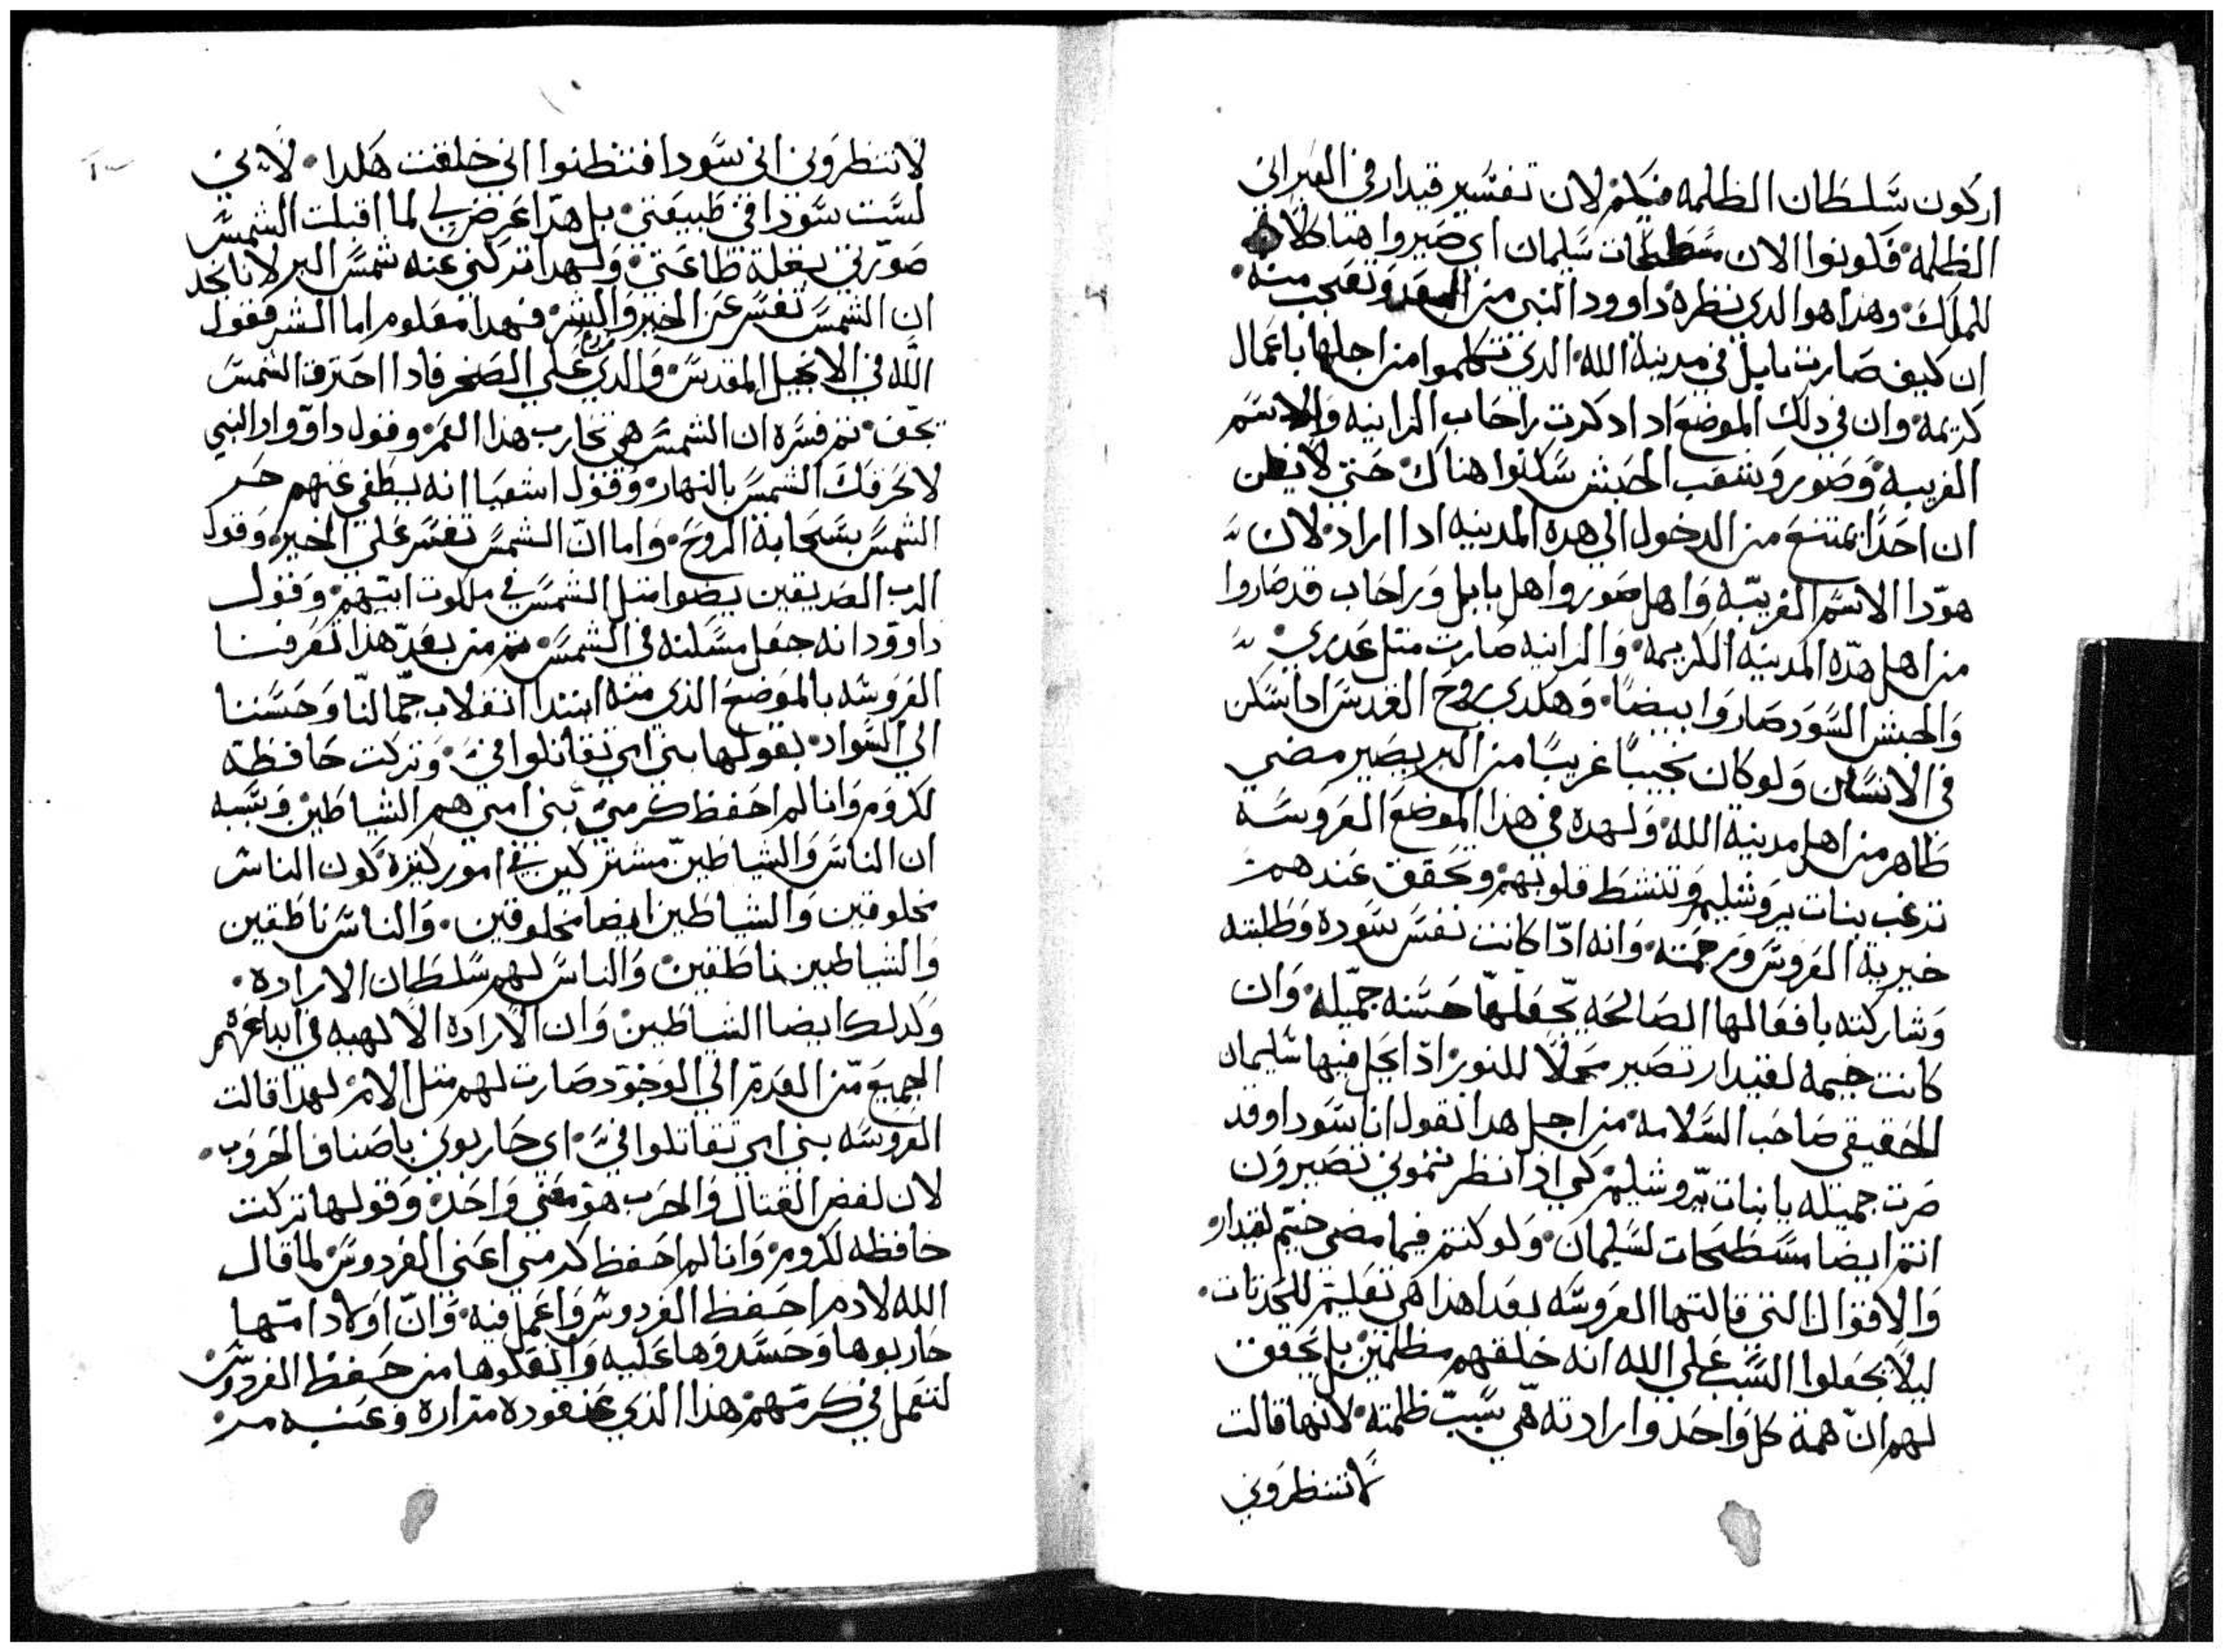 اركون سلطان الظلمه فيكم لان تفسير قيدار في العبراني
الظلمه فكونوا الان مسطحات سليمان اي صيروا هياكلا
للملك وهذا هوا الدي نظره داوود النبي من البعد وتعجب منه
ان كيف صارت بابل في مدينة الله الدي تكلموا من اجلها باعمال
كريمه وان في دلك الموضع اد ادكرت راحاب الزانيه والاسم
الغريبه وصور وشعب الحبش سكنوا هناك حتى لا يظن
ان احدا يمتنع من الدخول الي هده المدينه ادا اراد لان
هودا الاسم الغريبه واهل صور واهل بابل وراحاب قد صاروا
من اهل هده المدينه الكريمه والزانيه صارت متل عدري
والحبش السود صاروا بيضا وهكدي روح القدس ادا سكن
في الانسان ولو كان نجيبا غريبا من البر يصير مضي
طاهر من اهل مدينة الله ولهده في هذا الموضع العروسه
ترغب بنات يروشليم وتنشط قلوبهم وتحقق عندهم
خيرية العروس ورحمته وانه ادا كانت نفس سوده وطلبته
وشاركته بافعالها الصالحه يجعلها حسنه جميله وان
كانت خيمه لقيدار تصير محلا للنور ادا يحل فيها سليمان
الحقيقي صاحب السلامه من اجل هدا تقول انا سودا وقد
صرت جميله يا بنات يروشليم كي ادا نظرتموني تصيرون
انتم ايضا مسطحات لسليمان ولو كنتم فيما مضى خيم لقيدار
والاقوال التي قالتها العروسه بعد هذا هي تعليم للحدتات
ليلا يجعلوا السبب على الله انه خلقهم مظلمين بل يحقق
لهم ان همة كل واحد وارادته هي سبب ظلمته لانها قالت
لا تنظروني
لا تنظروني اني سودا فتظنوا اني خلقت هكدا لانني
لست سودا في طبيعتي بل هدا عرض لي لما اقبلت الشمس
صورتي بقلة طاعتي ولهدا تركني عنه شمس البر لانا نجد
ان الشمس تفسر عن الخير والشر فهدا معلوم اما الشر فقول
الله في الانجيل المقدس والدي زرع على الصخر فادا احترقت الشمس
يجف تم فسره ان الشمس هي تجارب هذا العمر وقول داووار النبي
لا تحرقك الشمس بالنهار وقول اشعيا انه يطفي عنهم حر
الشمس بسحابة الروح واما ان الشمس تفسر على الخير وقول
الرب الصديقين يضوا متل الشمس في ملكوت ابيهم وقول
داوود انه جعل مسكنه في الشمس تم من بعد هذا تعرفنا
العروسه بالموضع الذي منه ابتدا انقلاب جمالنا وحسننا
الي السواد بقولها بني امي تقاتلوا في وتركت حافظة
لكروم وانا لم احفظ كرمي بني امي هم الشياطين وبسبه
ان الناس والشياطين مشتركين في امور كتيرة كون الناس
مخلوقين والشياطين ايضا مخلوقين والناس ناطقين
والشياطين ناطقين والناس لهم سلطان الاراده
وكدلك ايضا الشياطين وان الاراده الالهيه في ابداعهم
الجميع من العدم الي الوجود صارت لهم متل الام لهدا قالت
العروسه بني امي تقاتلوا في اي حاربوني باصناف الحروب
لان لفض القتال والحرب هو معني واحد وقولها تركت
حافظه لكروم وانا لم احفظ كرمي اعني الفردوس لما قال
الله لادم احفظ الفردوس واعمل فيه وان اولاد امها
حاربوها وحسدوها عليه وانقلوها من حفظ الفردوس
لتعمل في كرمهم هذا الذي عنقوده مراره وعنبه مر